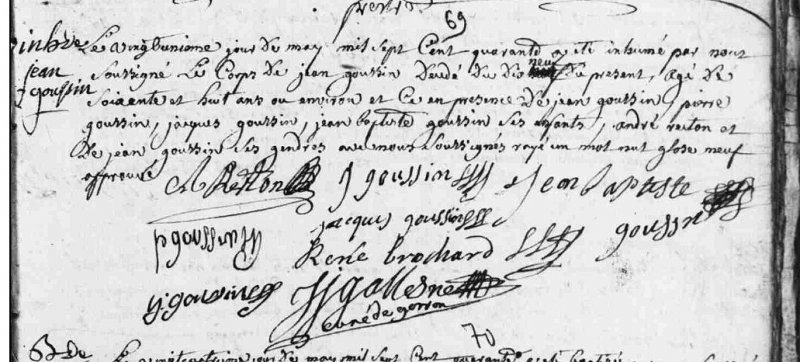 prêtre
69
inh de Le vingtunieme jour de may mil sept Cent quarante a été inhumé par nous
jean Soussigné Le Corps de jean goussin decedé du dix neuf du present, agé de
goussin Soixente et huit ans ou environ et Ce en presence de jean goussin, pierre
goussin, jacques goussin, jean baptiste goussin ses enfants, andré reston et
de jean goussin ses gendres avec nous Soussignés rayé un mot nul glose neuf
approuvé
A Reston j goussin jean baptiste
jacques goussin
p goussin goussin
René brochard
j goussin jj gallesne
curé de gorron
70
jour de may mil sept Cent quarante